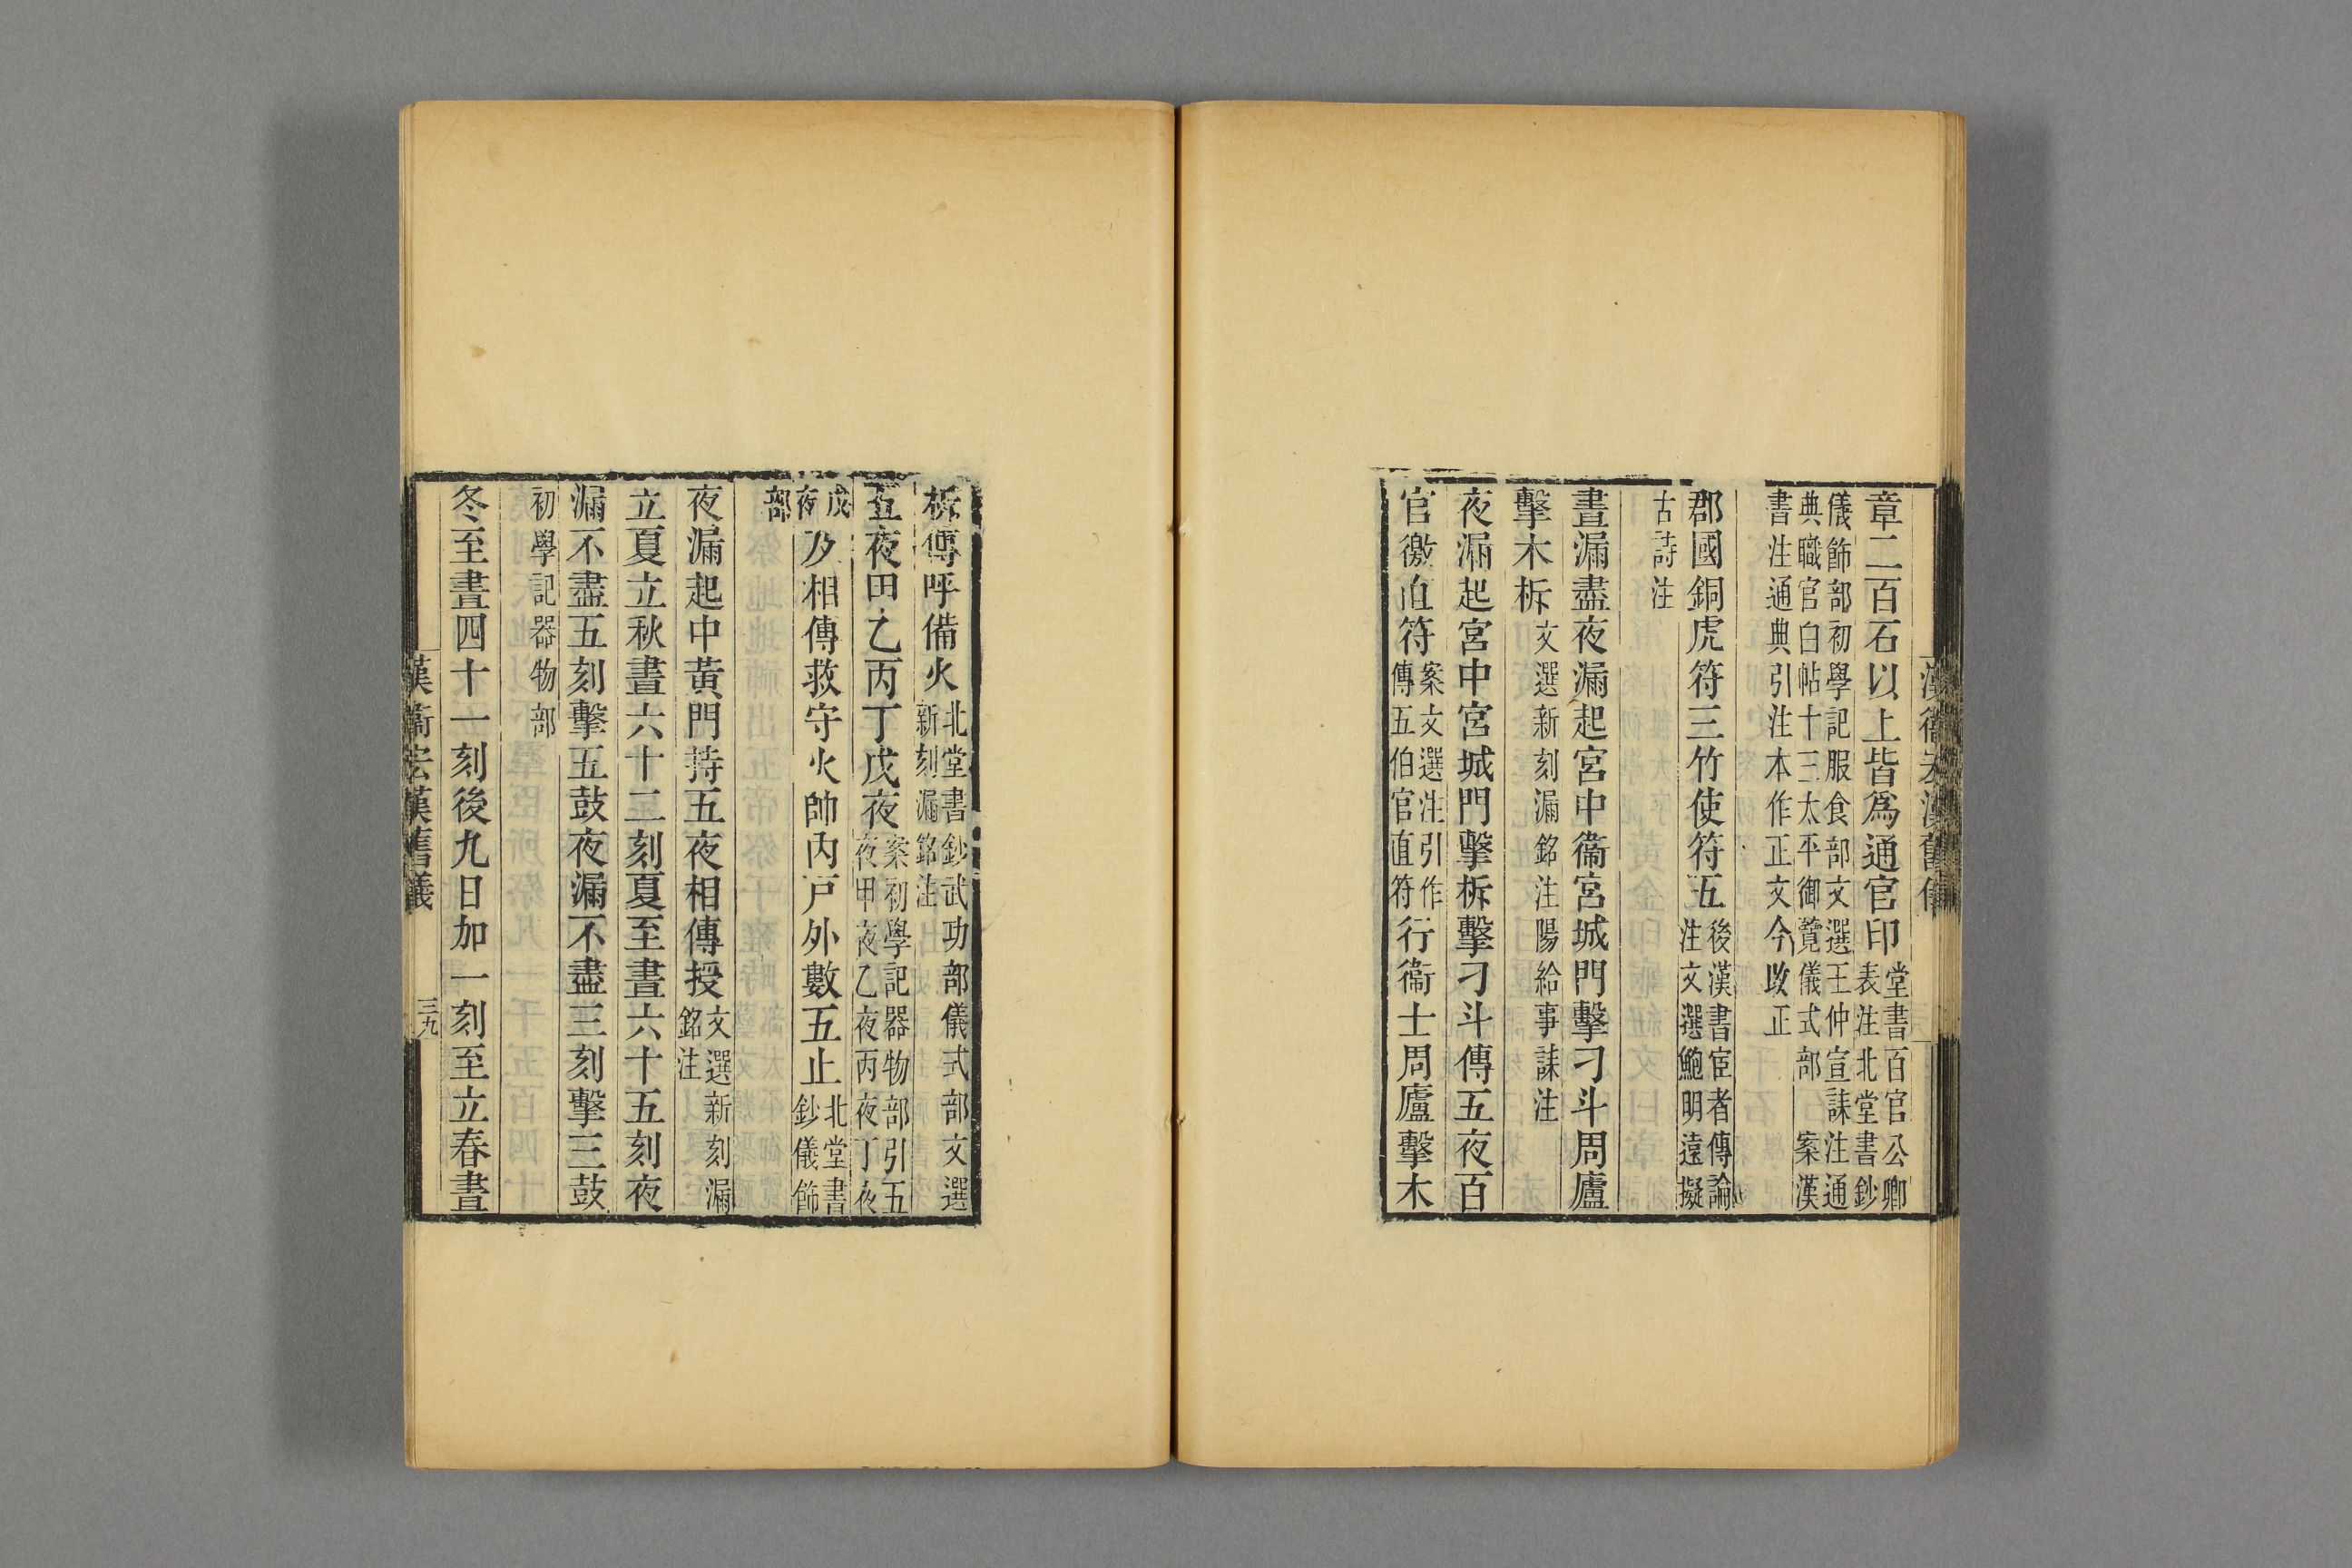 章二百石以上皆爲通官印堂書百官公卿表注北堂書鈔
儀飾部初學記服食部文選王仲宣誄注通典職官白帖十三太平御覽儀式部 案漢
書注通典引注本作正文今改正
郡國銅虎符三竹使符五後漢書宦者傳論注文選鮑明遠擬
古詩注
晝漏盡夜漏起宮中衞宮城門擊刁斗周廬
擊木柝文選新刻漏銘注陽給事誄注
夜漏起宮中宮城門擊柝擊刁斗傳五夜百
官徼直符案文選注引作傳五伯官直符行衞士周廬擊木
柝傳呼備火北堂書鈔武功部儀式部文選新刻漏銘注
五夜甲乙丙丁戊夜案初學記器物部引五夜甲夜乙夜丙夜丁夜
戊夜及相傳救守火帥內戸外數五止北堂書鈔儀飾
部
夜漏起中黃門持五夜相傳授文選新刻漏銘注
立夏立秋晝六十二刻夏至晝六十五刻夜
漏不盡五刻擊五鼓夜漏不盡三刻擊三鼓
初學記器物部
冬至晝四十一刻後九日加一刻至立春晝
漢衞宏漢舊儀
三九